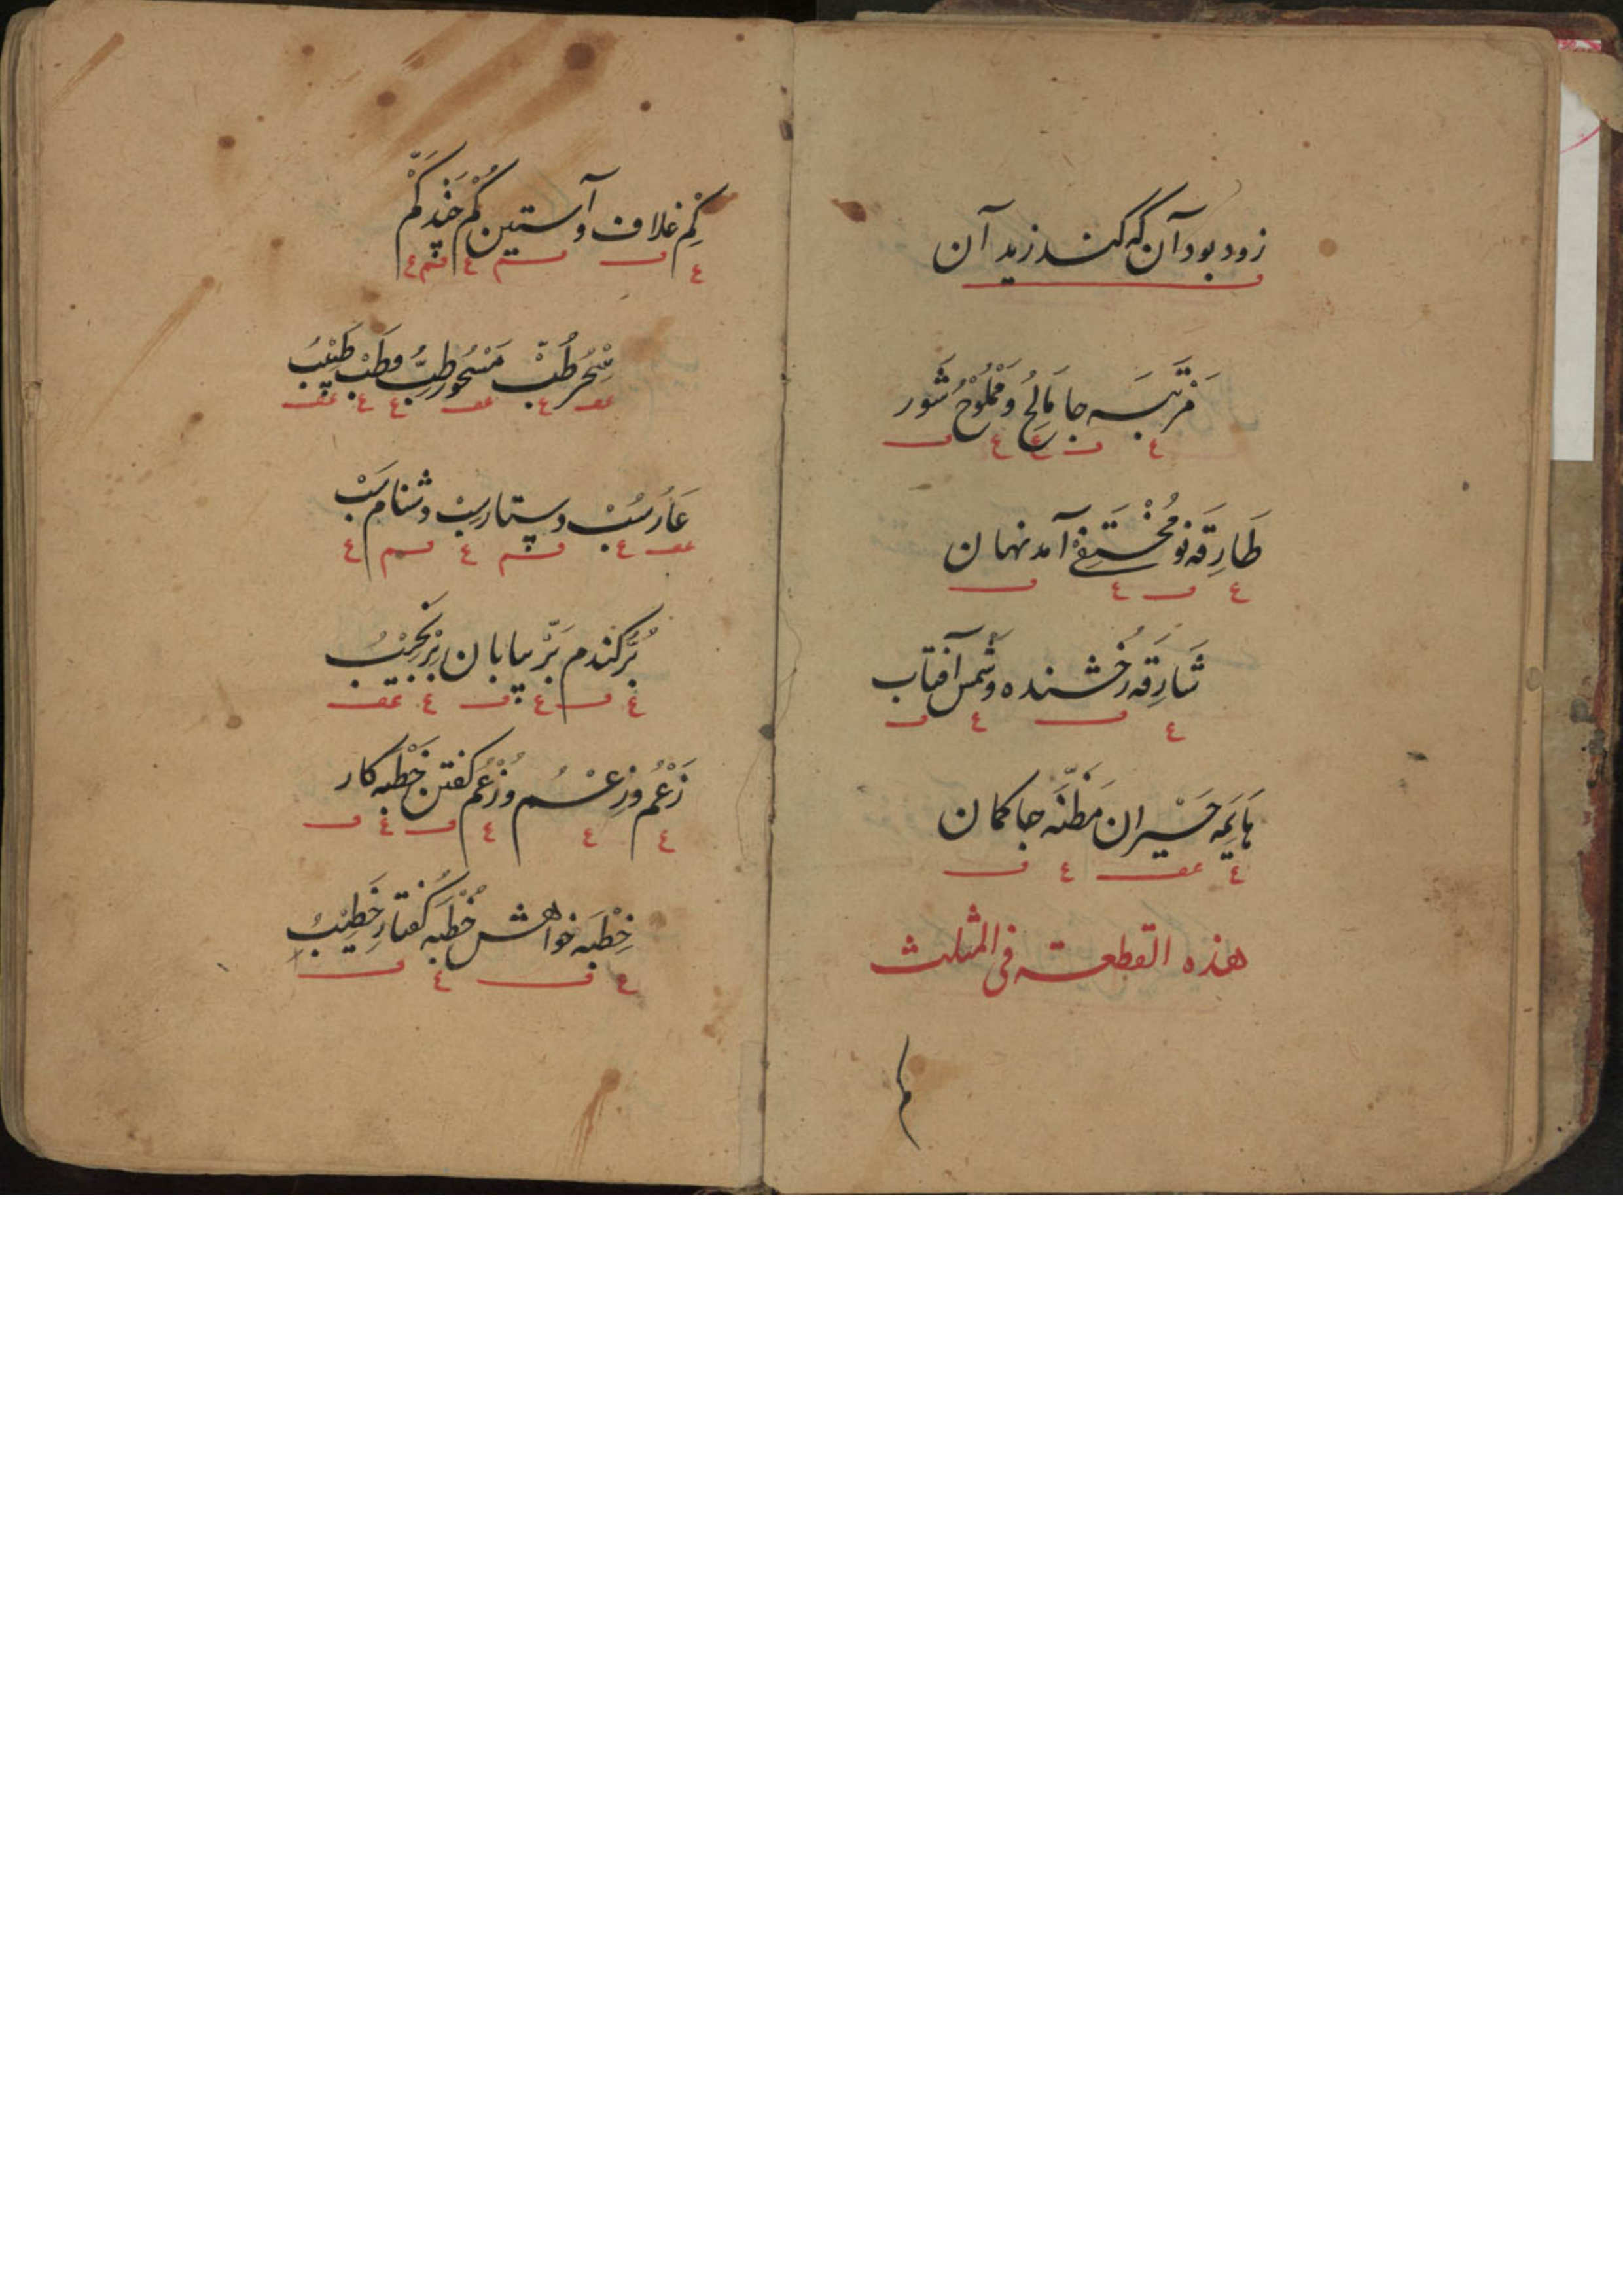 زود بود آن که کند زید آن
مَرْتَبَه جا مَالِحُ وَمَمْلُوْحُ شَور
طَارِقَه نو مُخْتَفِے آمد نهان
شَارِقَه رُخشنده وشَمس آفتاب
هَایِمَه حَیْران مَظَنَّه جا کمان
هذه القطعة فی المثلث
کِمْ غلاف و آستین کُمْ چَند کَمْ
سِحْر طُبّ مَسْحُور طِبُّ وطَبْ طَبِیْبُ
عَار سُبْ وستار سِبْ دشنام سَبْ
بُرّ کندم بَرّ بیابان بِرْ نَجِیْبُ
زَعْمُ وزِعْمُ وزُعْمُ کفتن خَطْبه کار
خِطْبَه خواهش خُطْبَه کُفتار خَطِیْبُ